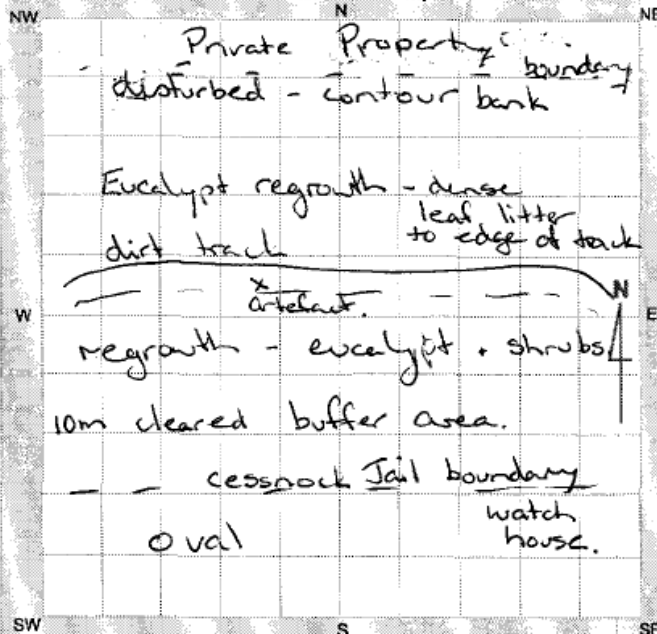 NW N NE
Private Property
boundary
disturbed - contour bank
Eucalypt regrowth - dense
leaf litter
to edge of track
dirt track
x
artefact.
N
W E
regrowth - eucalypt + shrubs
10m cleared buffer area.
cessnock Jail boundary
watch
house.
Oval
SW S SE